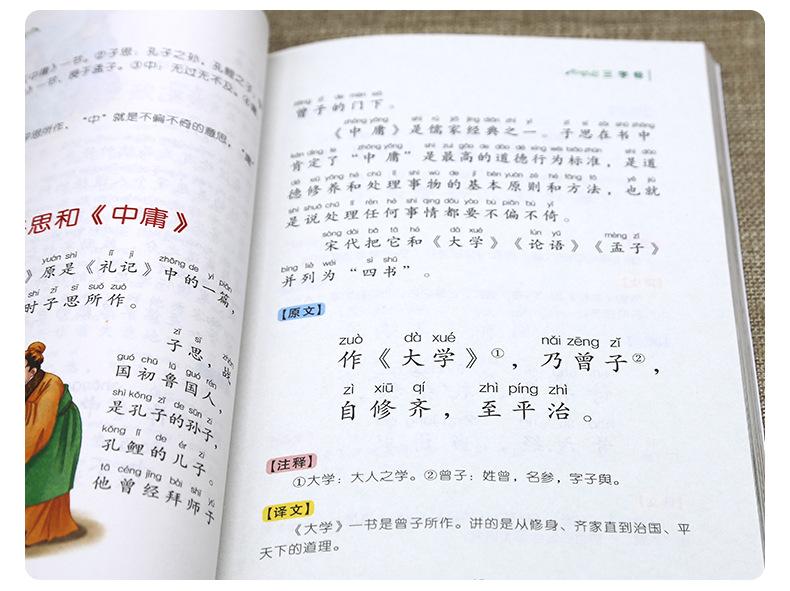 《中庸》一书。②子思：孔子之孙，孔鲤之子，
一书，授于孟子。③中：无过无不及。④庸
思所作，“中”就是不偏不倚的意思，“庸”
思和《中庸》
yuán shì lǐ jì zhōng de yì piān
》原是《礼记》中的一篇，
shí zǐ sī suǒ zuò
时子思所作。
zǐ sī zhàn
子思，战
guó chū lǔ guó rén
国初鲁国人，
shì kǒng zǐ de sūn zi
是孔子的孙子，
kǒng lǐ de ér zi
孔鲤的儿子。
tā céng jīng bài shī yú
他曾经拜师于
三字经
zēng zǐ de mén xià
曾子的门下。
zhōng yōng shì rú jiā jīng diǎn zhī yī zǐ sī zài shū zhōng
《中庸》是儒家经典之一。子思在书中
kěn dìng le zhōng yōng shì zuì gāo de dào dé xíng wéi biāo zhǔn shì dào
肯定了“中庸”是最高的道德行为标准，是道
dé xiū yǎng hé chǔ lǐ shì wù de jī běn yuán zé hé fāng fǎ yě jiù
德修养和处理事物的基本原则和方法，也就
shì shuō chǔ lǐ rèn hé shì qing dōu yào bù piān bù yǐ
是说处理任何事情都要不偏不倚。
sòng dài bǎ tā hé dà xué lún yǔ mèng zǐ
宋代把它和《大学》《论语》《孟子》
bìng liè wéi sì shū
并列为“四书”。
【原文】
zuò dà xué nǎi zēng zǐ
作《大学》①，乃曾子②，
zì xiū qí zhì píng zhì
自修齐，至平治。
【注释】
①大学：大人之学。②曾子：姓曾，名参，字子舆。
【译文】
《大学》一书是曾子所作。讲的是从修身、齐家直到治国、平
天下的道理。